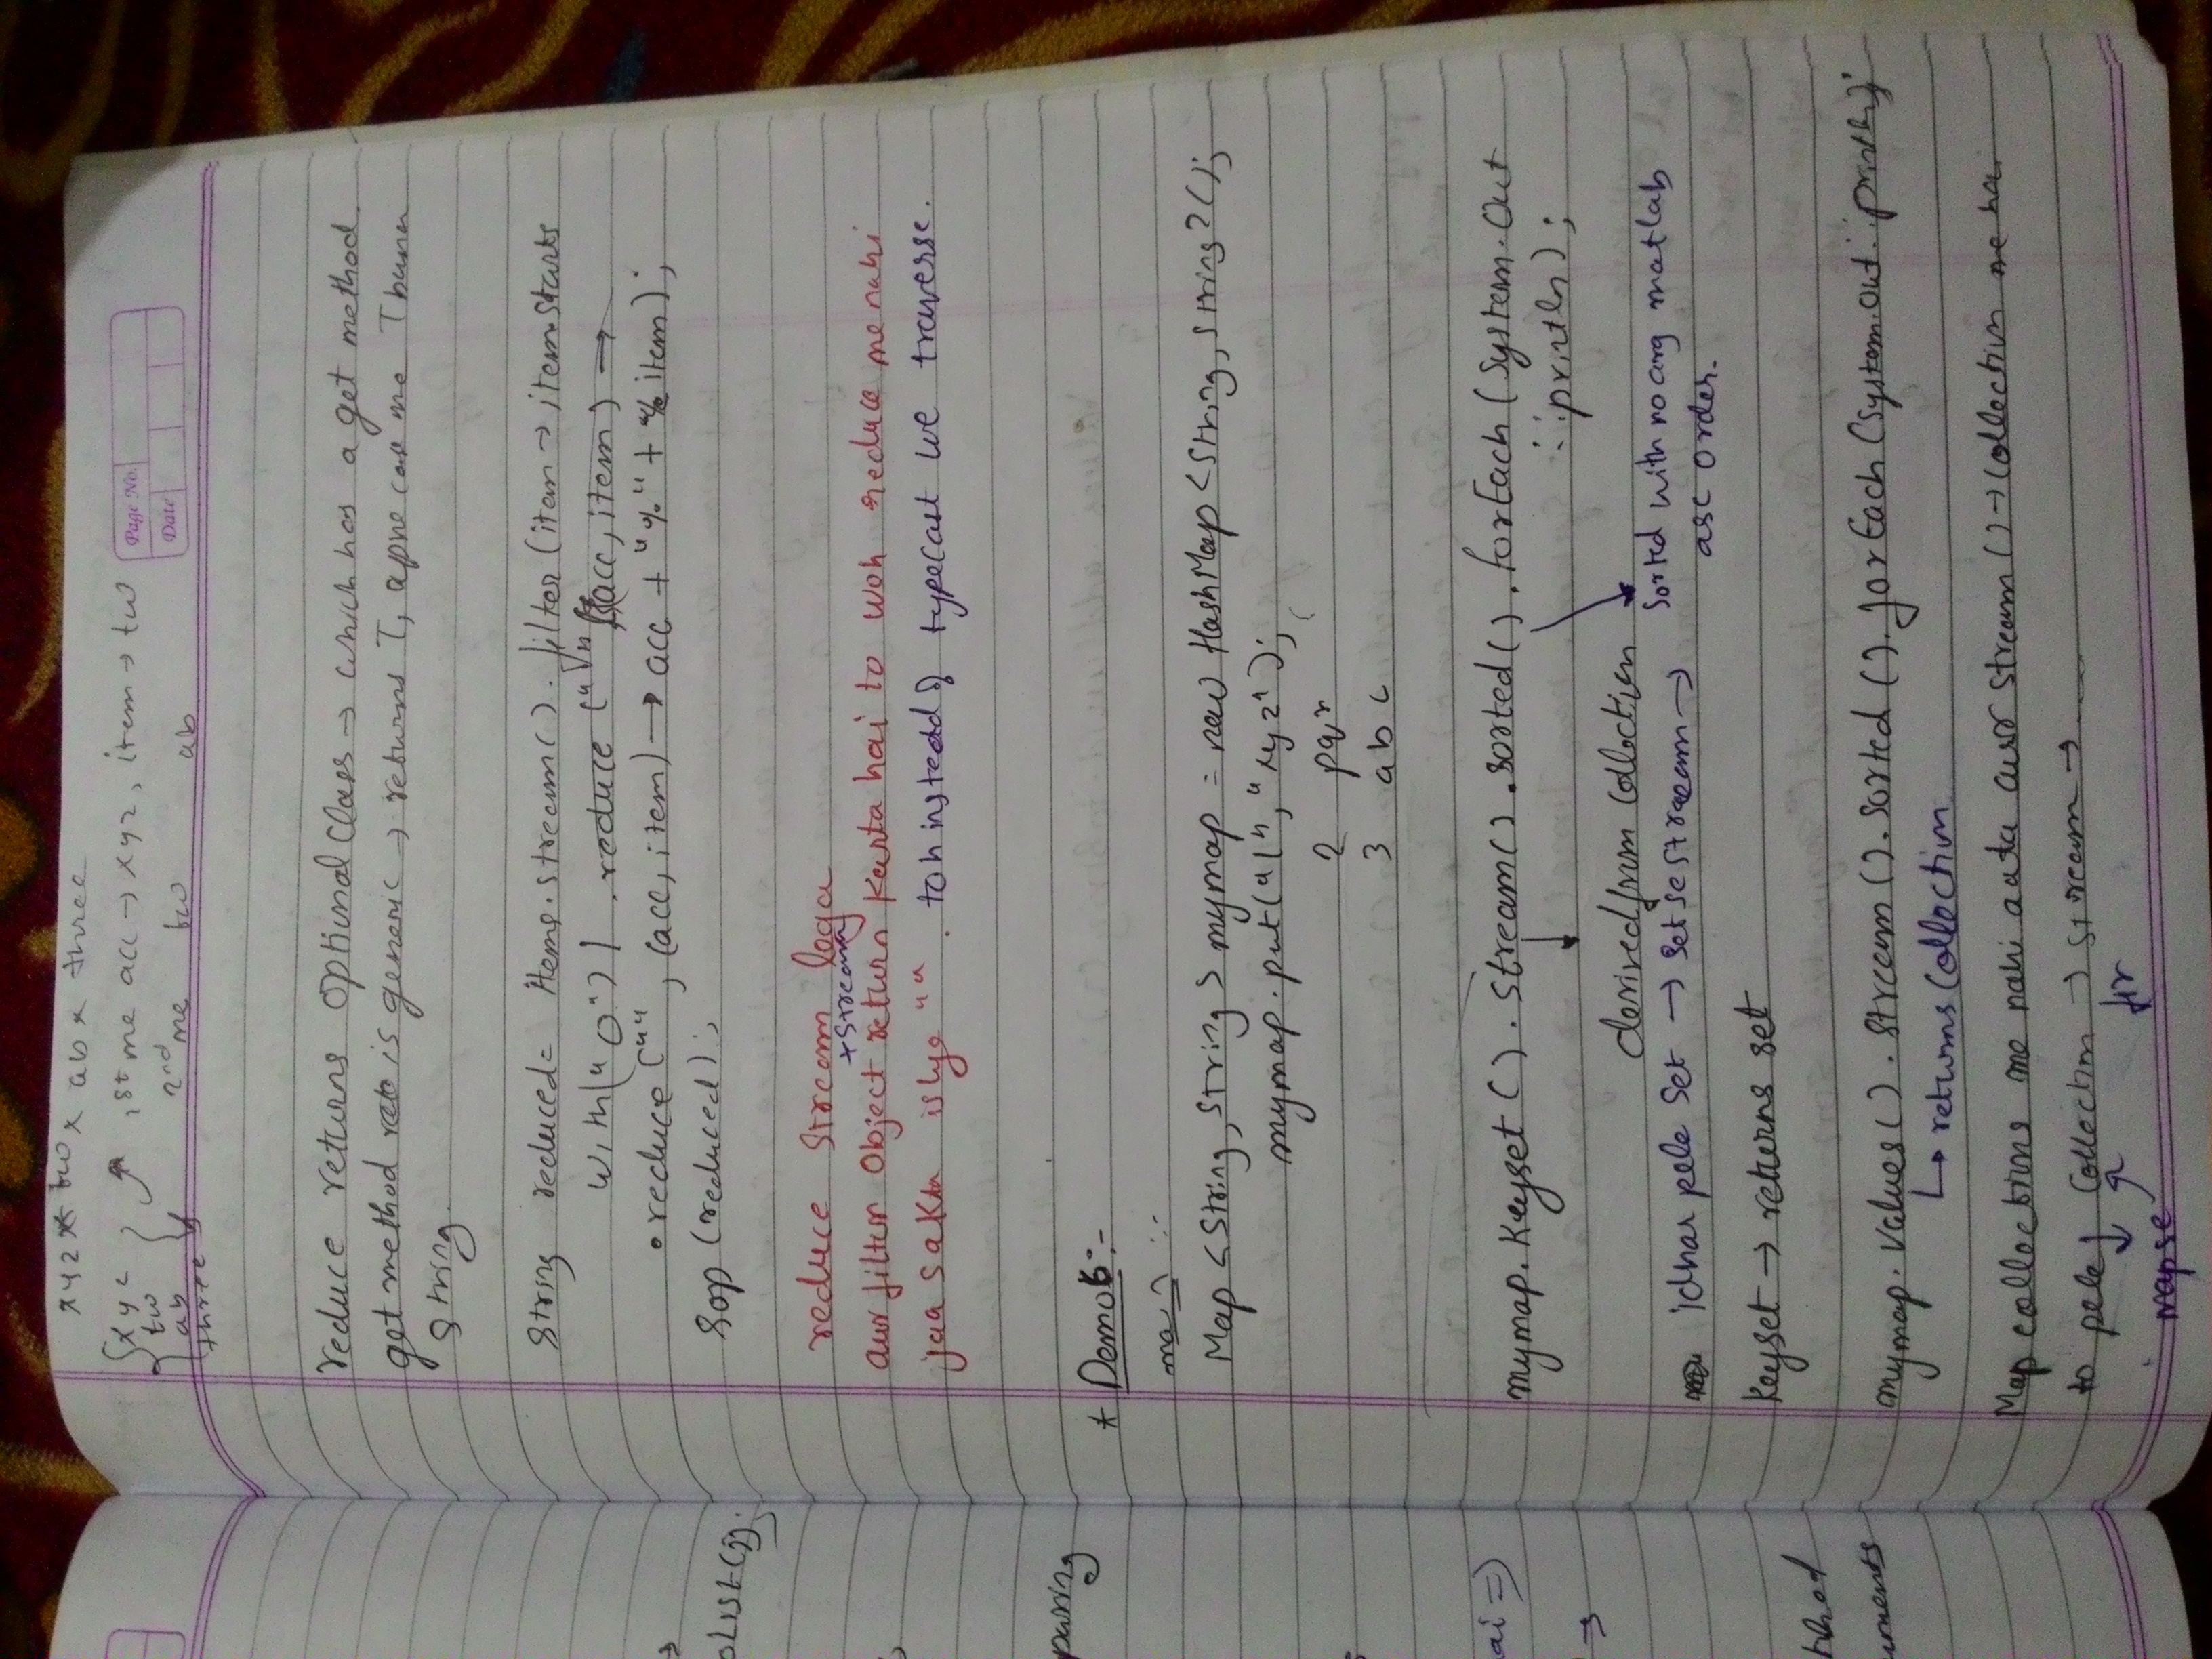 xyz * tw x ab x three
xyz
tw
ab
three
1st me acc → xyz, item → tw
2nd me tw ab
Page No.
Date
reduce returns Optional Class → which has a get method
get method is generic → returns T, apne case me T buna
String.
String reduced = items.stream().filter(item → item.starts
With("o")) .reduce ("" (acc, item) →
.reduce ("", (acc, item) → acc + "%" + item);
Sop (reduced);
reduce Stream lega
+Stream
aur filter Object return karta hai to woh reduce me nahi
jaa sakta islye "" . toh instead of typecast we traverse.
* Demo6:-
main :-
Map <String, String> mymap = new HashMap <String, String>();
mymap.put("1", "xyz");
2 pqr
3 abc
mymap.Keyset().Stream().sorted().forEach(System.Out
::println);
derived from Collection
Sorted with no arg matlab
idhar pele Set → Set se stream →
asc order.
Keyset → returns set
mymap.values().stream().sorted().forEach(System.out::println);
↳ returns Collection
Map collections me nahi aata aur stream() → Collection me hai
to pele Collection → stream →
fir
map se
oLIST());
paring
ai =)
→
thod
uments